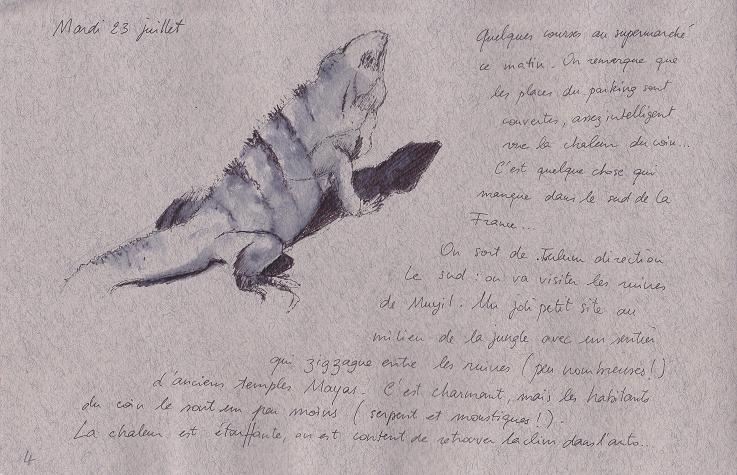 Mardi 23 juillet
Quelques courses au supermarché
ce matin. On remarque que
les places du parking sont
couvertes, assez intelligent
vue la chaleur du coin...
C'est quelque chose qui
manque dans le sud de la
France...
On sort de Tulum direction
le sud : on va visiter les ruines
de Muyil. Un joli petit site au
milieu de la jungle avec un sentier
qui zigzague entre les ruines (peu nombreuses !)
d'anciens temples Mayas. C'est charmant, mais les habitants
du coin le sont un peu moins (serpent et moustiques !).
La chaleur est étouffante, on est content de retrouver la clim dans l'auto...
4